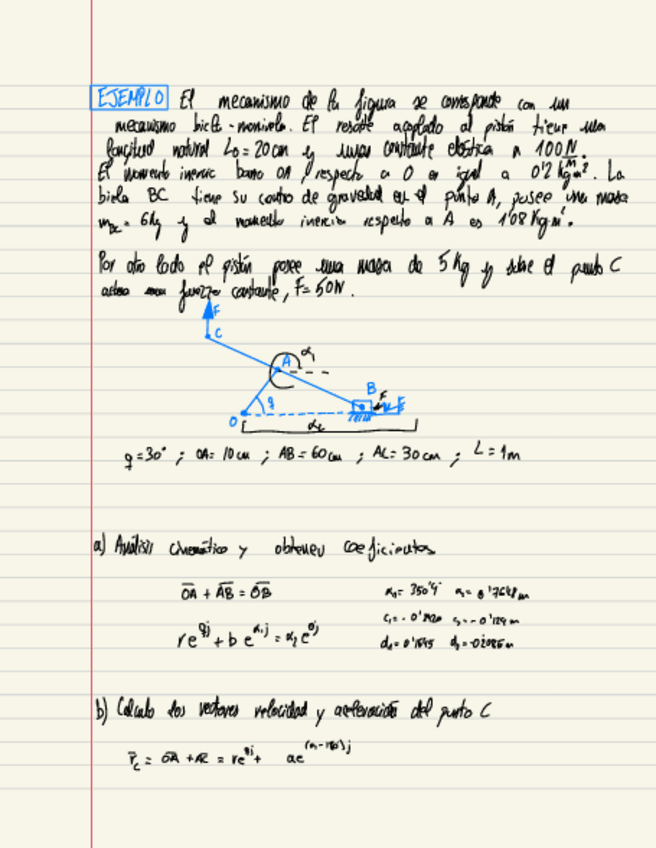 EJEMPLO El mecanismo de la figura se corresponde con un
mecanismo biela-manivela. El resorte acoplado al pistón tiene una
longitud natural L₀ = 20 cm y una constante elástica a 100 N/m.
El momento inercia barra OA, respecto a O es igual a 0'2 kg m². La
biela BC tiene su centro de gravedad en el punto A, posee una masa
m_BC = 6 kg y el momento inercia respecto a A es 1'08 Kg m².
Por otro lado el pistón posee una masa de 5 Kg y sobre el punto C
actúa una fuerza constante, F = 50 N.
F
C
A
α₁
B
F
q
O
α₂
q = 30° ; OA = 10 cm ; AB = 60 cm ; AC = 30 cm ; L = 1 m
a) Análisis cinemático y obtener coeficientes
OA + AB = OB
α₁ = 350'4°
re^{qj} + be^{α₁j} = α₂e^{0j}
b) Calcula los vectores velocidad y aceleración del punto C
r̄_C = OA + AC = re^{qj} + ae^{(α₁-180)j}